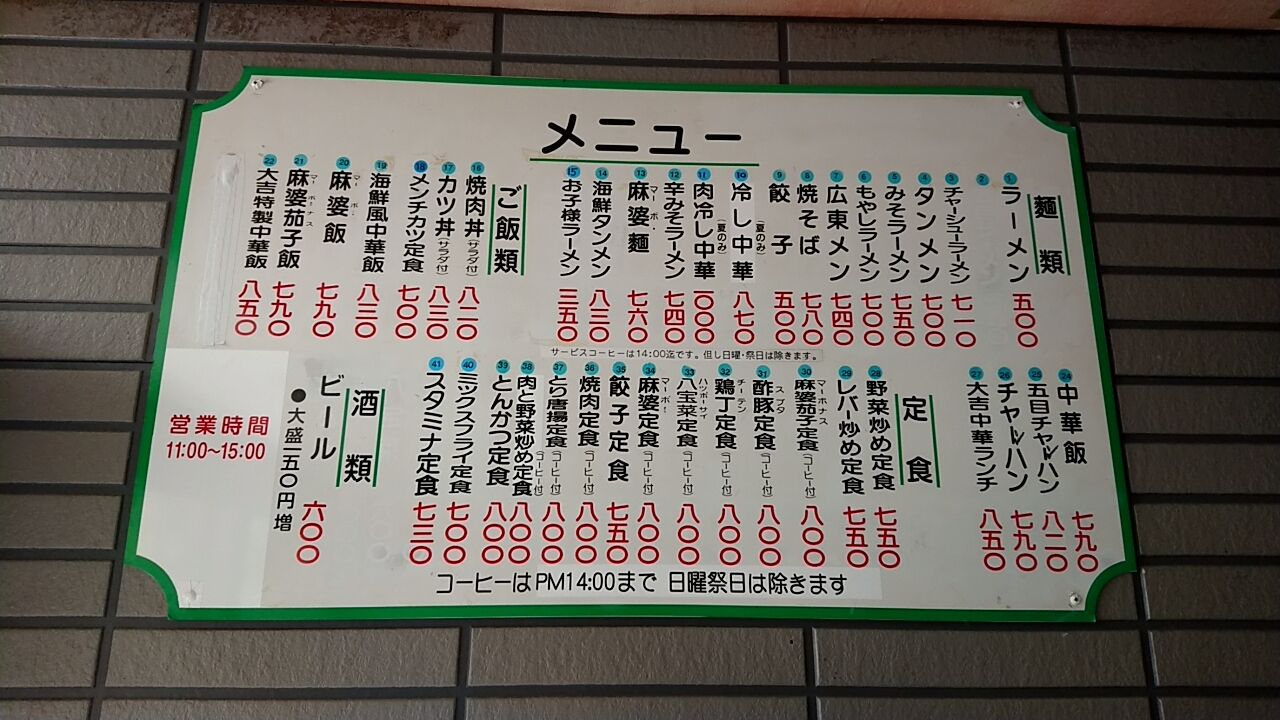 メニュー
麺類
① ラーメン 五〇〇
②
③ チャーシューメン 七一〇
④ タンメン 七〇〇
⑤ みそラーメン 七五〇
⑥ もやしラーメン 七〇〇
⑦ 広東メン 七四〇
⑧ 焼そば 七八〇
⑨ 餃子 五〇〇
⑩ 冷し中華(夏のみ) 八七〇
⑪ 肉冷し中華(夏のみ) 一〇〇〇
⑫ 辛みそラーメン 七四〇
⑬ 麻婆麺 マーボー 七六〇
⑭ 海鮮タンメン 八三〇
⑮ お子様ラーメン 三五〇
ご飯類
⑯ 焼肉丼(サラダ付) 八二〇
⑰ カツ丼(サラダ付) 八三〇
⑱ メンチカツ定食 七〇〇
⑲ 海鮮風中華飯 八三〇
⑳ 麻婆飯 マーボー 七九〇
㉑ 麻婆茄子飯 マーボーナス 七九〇
㉒ 大吉特製中華飯 八五〇
サービスコーヒーは14:00迄です。但し日曜・祭日は除きます。
㉔ 中華飯 七九〇
㉕ 五目チャーハン 八二〇
㉖ チャーハン 七九〇
㉗ 大吉中華ランチ 八五〇
定食
㉘ 野菜炒め定食 七五〇
㉙ レバー炒め定食 七五〇
㉚ 麻婆茄子定食 マーボナス (コーヒー付) 八〇〇
㉛ 酢豚定食 スブタ (コーヒー付) 八〇〇
㉜ 鶏丁定食 チーテン (コーヒー付) 八〇〇
㉝ 八宝菜定食 ハッポーサイ (コーヒー付) 八〇〇
㉞ 麻婆定食 マーボー (コーヒー付) 八〇〇
㉟ 餃子定食 七五〇
㊱ 焼肉定食 (コーヒー付) 八〇〇
㊲ とり唐揚定食 (コーヒー付) 八〇〇
㊳ 肉と野菜炒め定食 (コーヒー付) 八〇〇
㊴ とんかつ定食 八〇〇
㊵ ミックスフライ定食 七〇〇
㊶ スタミナ定食 七三〇
酒類
ビール 六〇〇
●大盛一五〇円増
営業時間
11:00~15:00
コーヒーはPM14:00まで 日曜祭日は除きます